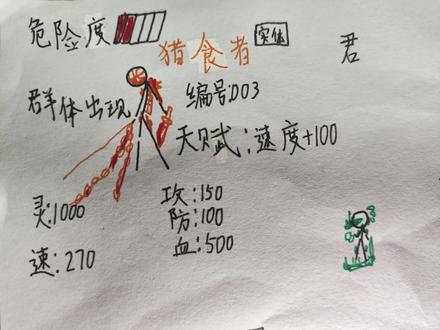 危险度
猎食者 实体 君
群体出现 编号:003
天赋:速度+100
灵:1000 攻:150
防:100
速:270 血:500